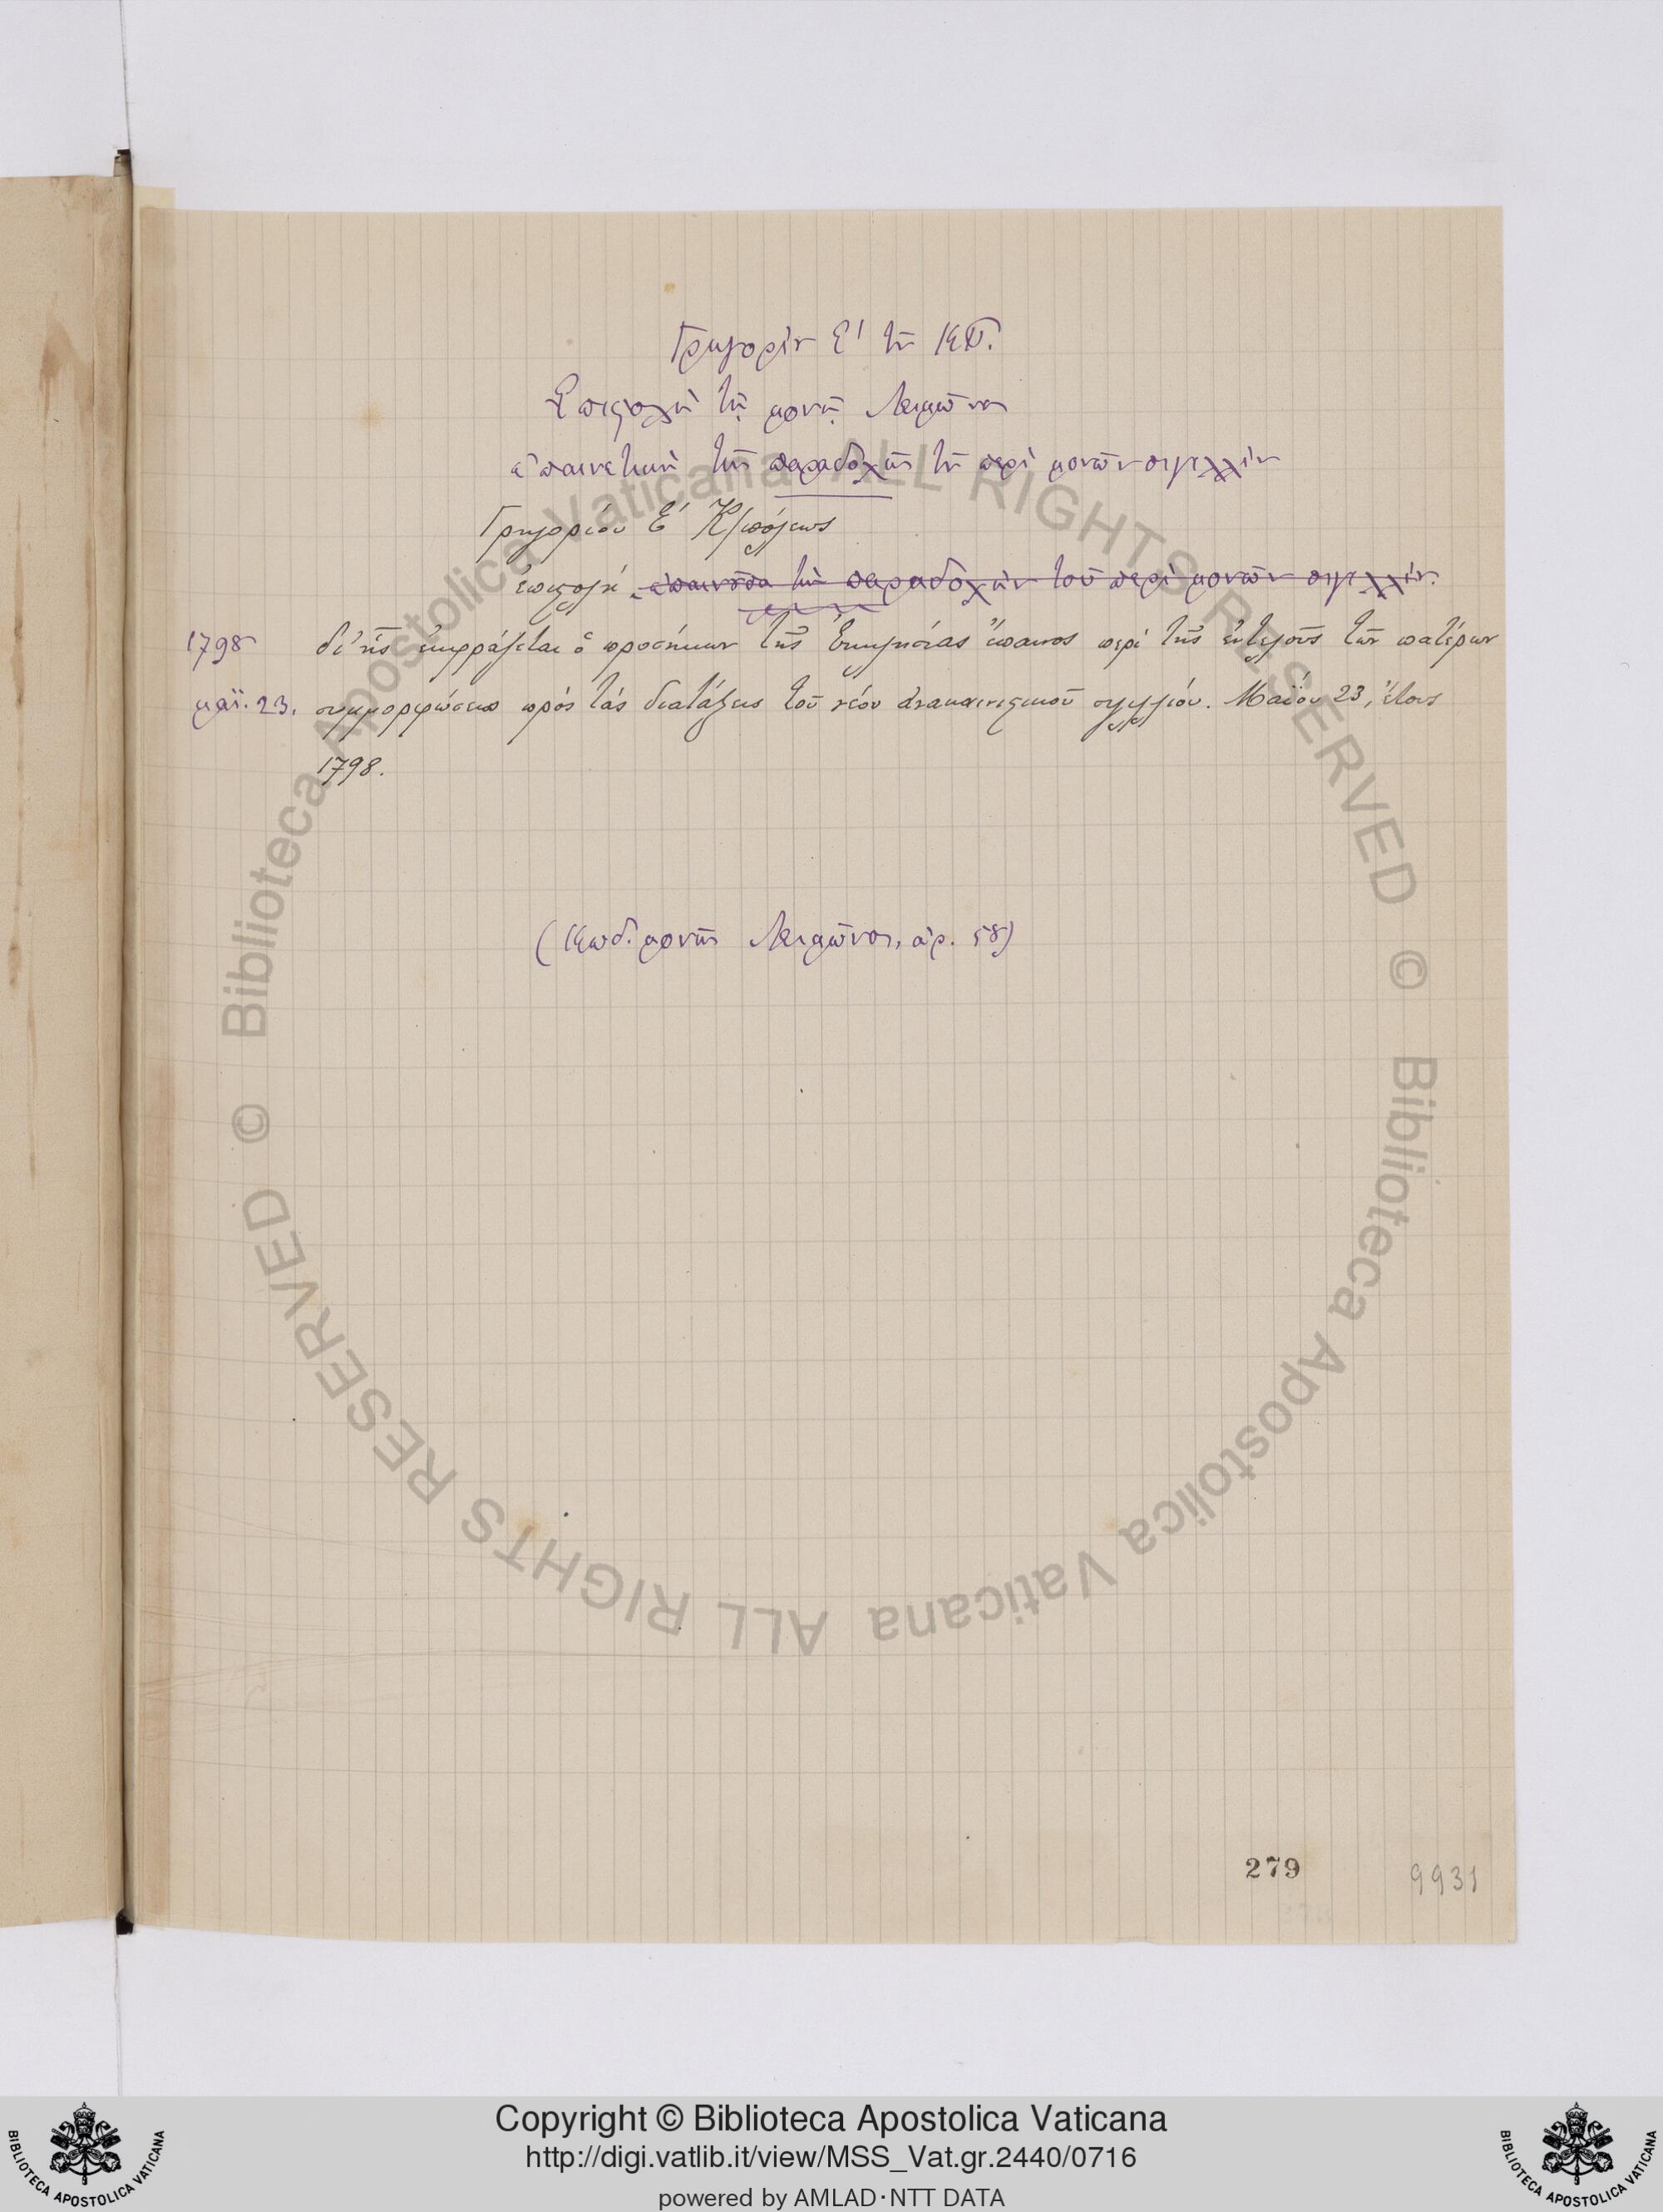 Γρηγορίου Ε' τοῦ ΚΠ.
Ἐπιστολὴ τῇ μονῇ Λειμῶνος
ἐπαινετικὴ τῆς παραδοχῆς τοῦ περὶ μονῶν σιγιλλίου
Γρηγορίου Ε' Κ/πόλεως
ἐπιστολή, ἐπαινοῦσα τὴν παραδοχὴν τοῦ περὶ μονῶν σιγιλλίου.
1798 δι' ἧς ἐκφράζεται ὁ προσήκων τῆς Ἐκκλησίας ἔπαινος περὶ τῆς ἐντελοῦς τῶν πατέρων
μαΐ. 23. συμμορφώσεως πρὸς τὰς διατάξεις τοῦ νέου ἀνακαινιστικοῦ σιγιλλίου. Μαΐου 23, ἔτους
1798.
(Κωδ. μονῆς Λειμῶνος, ἀρ. 58)
279
9931
Copyright © Biblioteca Apostolica Vaticana
http://digi.vatlib.it/view/MSS_Vat.gr.2440/0716
powered by AMLAD·NTT DATA
BIBLIOTECA APOSTOLICA VATICANA
BIBLIOTECA APOSTOLICA VATICANA
© Biblioteca Apostolica Vaticana ALL RIGHTS RESERVED © Biblioteca Apostolica Vaticana ALL RIGHTS RESERVED